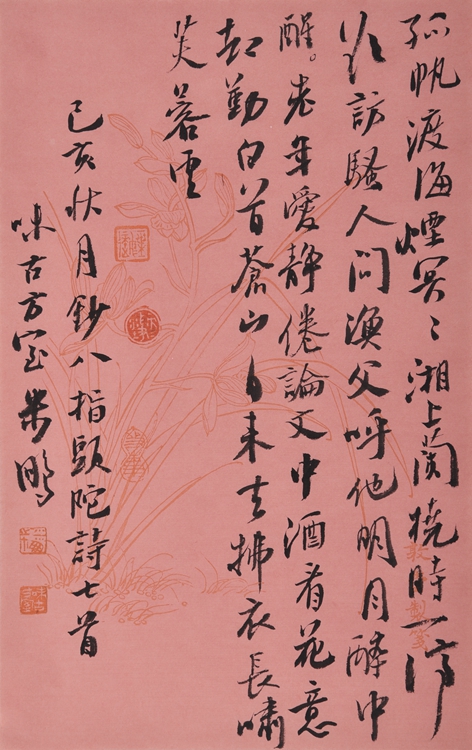 孤帆渡海煙冥〻湘上蘭橈時一停
訪騷人問漁父呼他明月醉中
醒。老年愛靜倦論文中酒看花意
却勤白首蒼山自來去拂衣長嘯
芙蓉雲
己亥秋月鈔八指頭陀詩七首
味古方室朱鵬